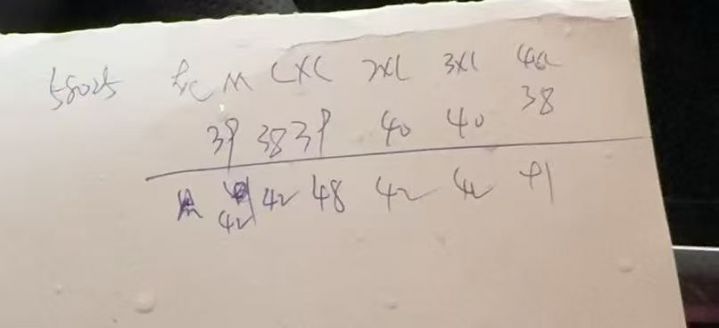 58025 M L XL 2XL 3XL 4XL
39 38 39 40 40 38
42 42 48 42 42 41